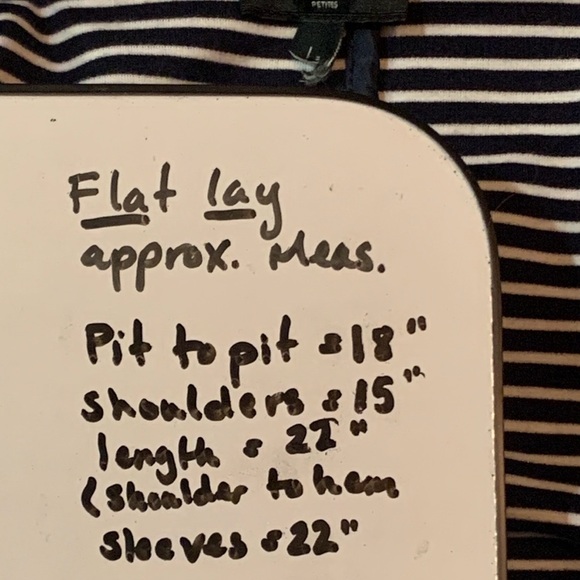 PETITES
Flat lay
approx. Meas.
Pit to pit = 18"
shoulders = 15"
length =
(shoulder to hem
sleeves = 22"